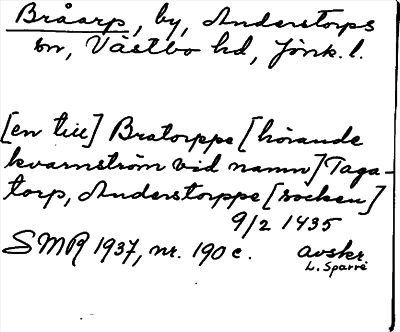 Bråarp, by, Anderstorps
sn, Västbo hd, Jönk. l.
[en till] Bratorppe [hörande
kvarnström vid namn] Taga-
torp, Anderstorppe [socken]
9/2 1435
SMR 1937, nr. 190 c. avskr.
L. Sparre